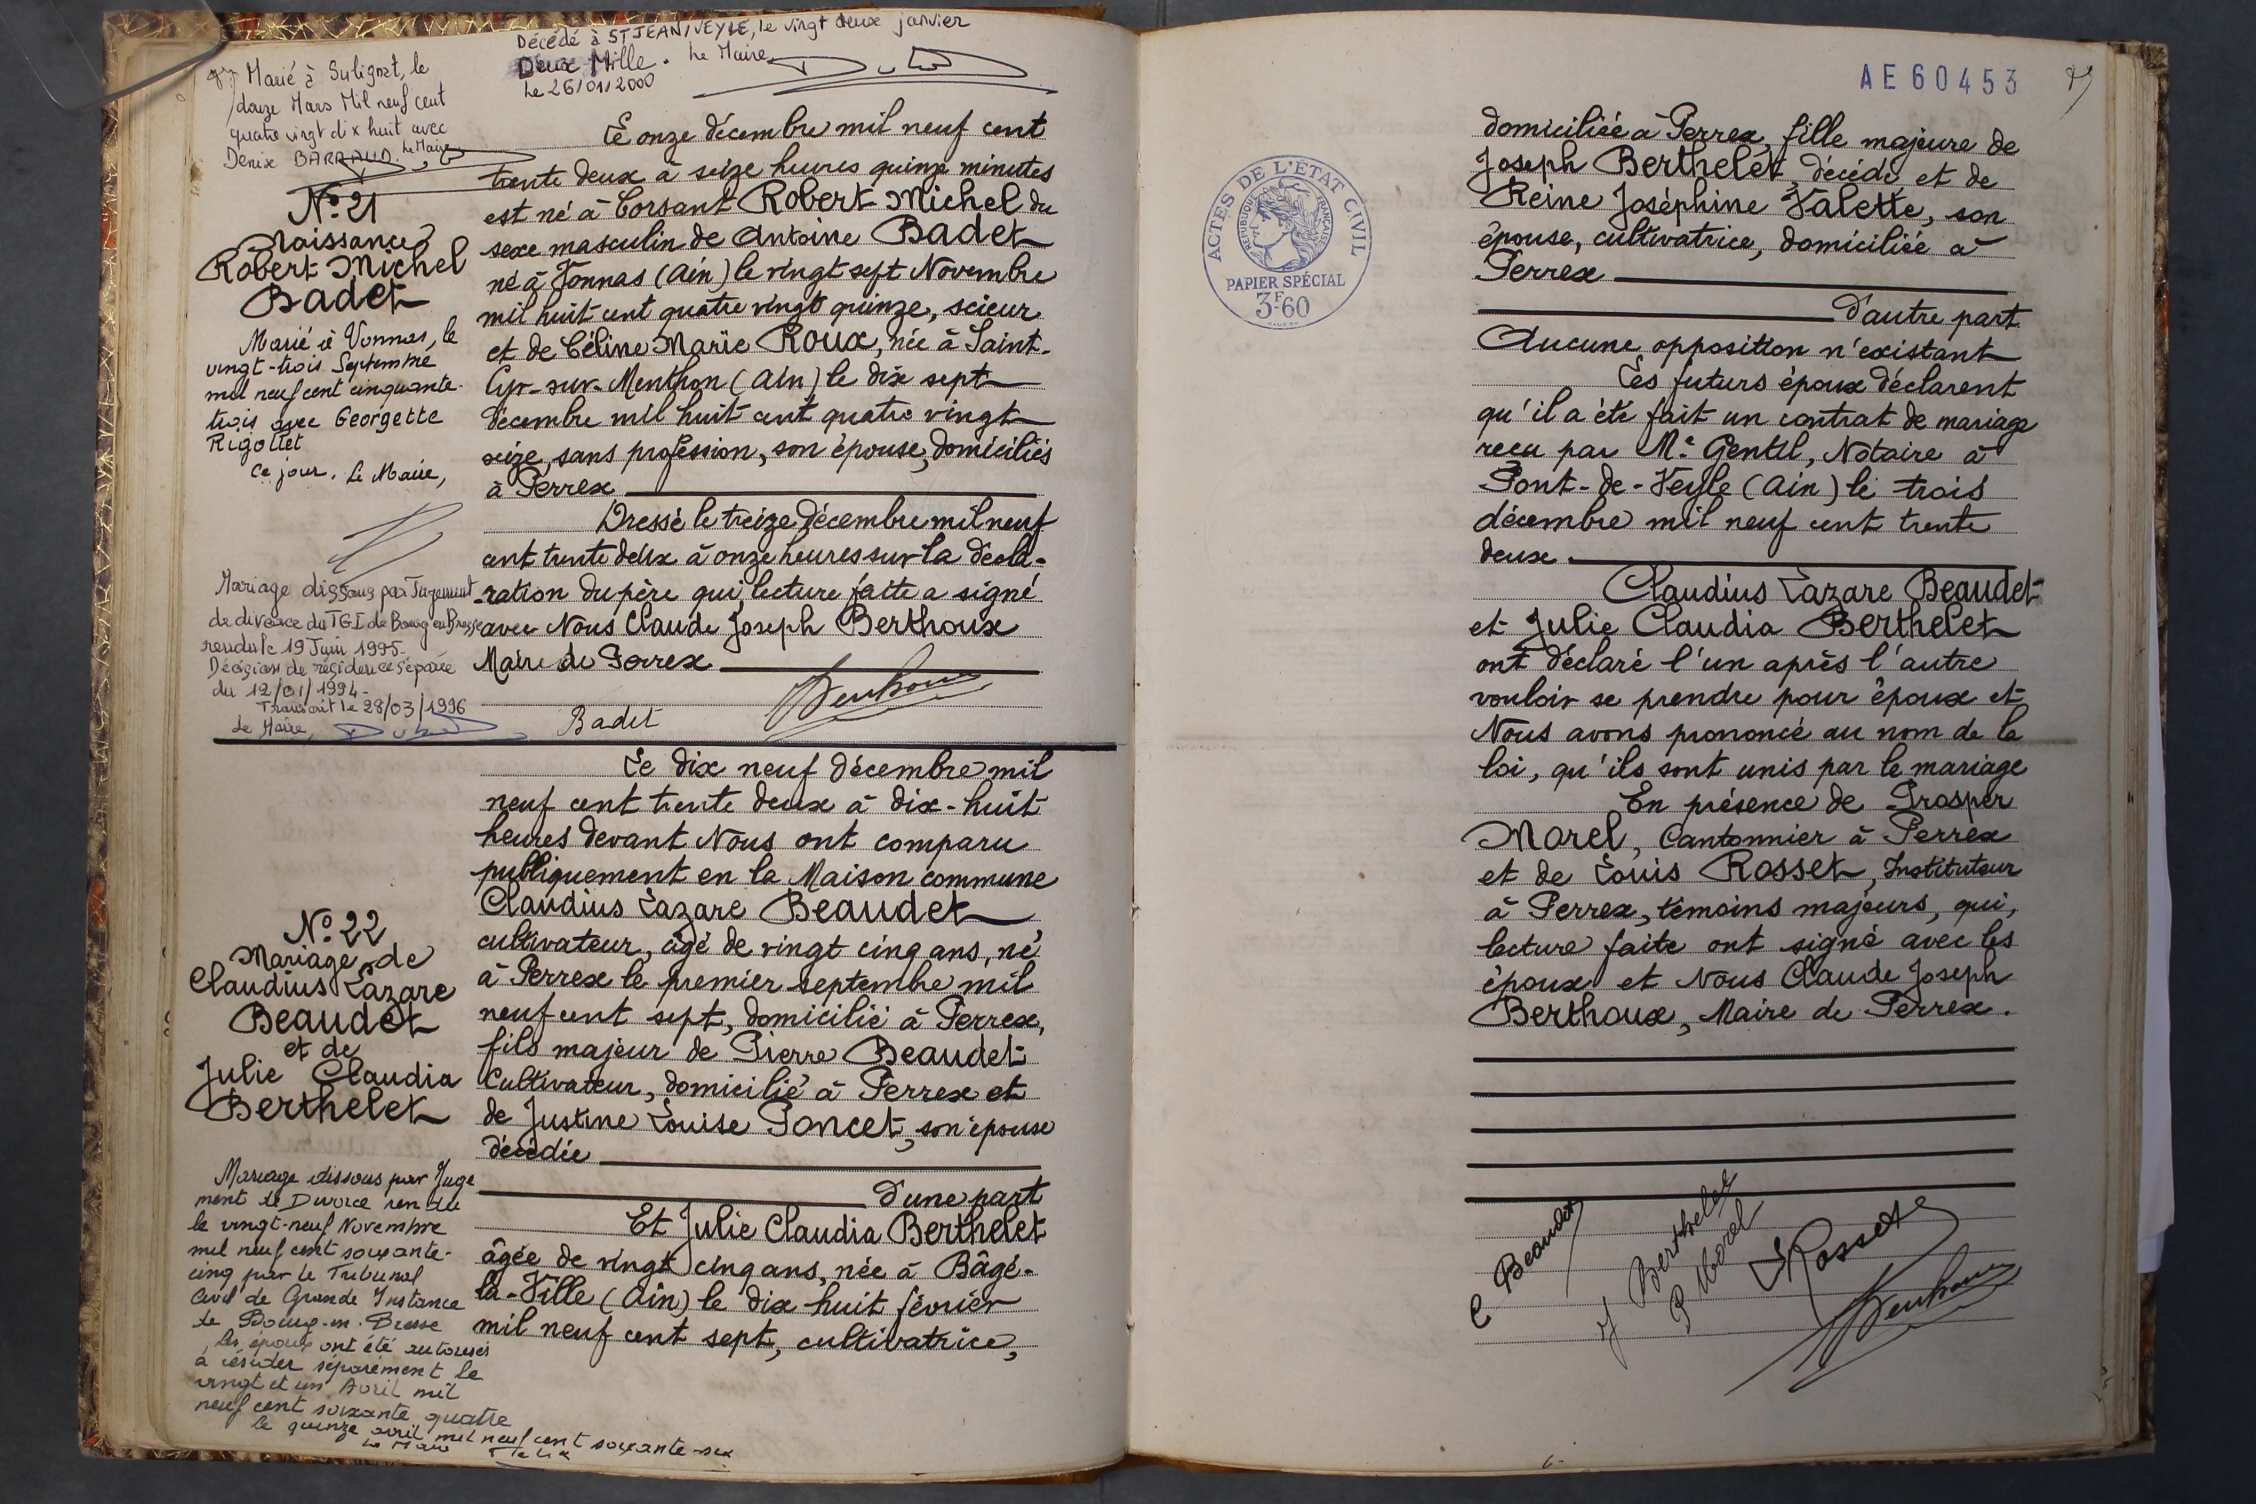 Décédé à ST JEAN/VEYLE, le vingt deux janvier
Deux Mille. Le Maire
Le 26/01/2000
Marié à Sulignat, le
douze Mars Mil neuf cent
quatre vingt dix huit avec
Denise BARRAUD. Le Maire
Le onze décembre mil neuf cent
trente deux à seize heures quinze minutes
est né à Corsant Robert Michel du
sexe masculin de Antoine Badet
né à Vonnas (Ain) le vingt sept Novembre
mil huit cent quatre vingt quinze, scieur
et de Céline Marie Roux, née à Saint-
Cyr-sur-Menthon (Ain) le dix sept
décembre mil huit cent quatre vingt
seize, sans profession, son épouse, domiciliés
à Perrex
Dressé le treize décembre mil neuf
cent trente deux à onze heures sur la décla-
-ration du père qui, lecture faite a signé
avec Nous Claude Joseph Berthoux
Maire de Perrex
Badet
N° 21
Naissance
Robert Michel
Badet
Marié à Vonnas, le
vingt-trois Septembre
mil neuf cent cinquante-
trois avec Georgette
Rigottet
Ce jour. Le Maire,
Mariage dissous par Jugement
de divorce du TGI de Bourg en Bresse
rendu le 19 Juin 1995.
Décision de résidence séparée
du 12/01/1994.
Transcrit le 28/03/1996
Le Maire,
Le dix neuf décembre mil
neuf cent trente deux à dix-huit
heures devant Nous ont comparu
publiquement en la Maison commune
Claudius Lazare Beaudet
cultivateur, âgé de vingt cinq ans, né
à Perrex le premier septembre mil
neuf cent sept, domicilié à Perrex,
fils majeur de Pierre Beaudet
Cultivateur, domicilié à Perrex et
de Justine Louise Poncet, son épouse
décédée
d'une part
Et Julie Claudia Berthelet
âgée de vingt cinq ans, née à Bâgé-
la-Ville (Ain) le dix huit février
mil neuf cent sept, cultivatrice,
N° 22
Mariage de
Claudius Lazare
Beaudet
et de
Julie Claudia
Berthelet
Mariage dissous par Juge
ment de Divorce rendu
le vingt-neuf Novembre
mil neuf cent soixante-
cinq par le Tribunal
Civil de Grande Instance
de Bourg-en-Bresse
les époux ont été autorisés
à résider séparément le
vingt et un Avril mil
neuf cent soixante quatre
le quinze avril mil neuf cent soixante-six
Le Maire
AE60453
ACTES DE L'ÉTAT CIVIL
RÉPUBLIQUE FRANÇAISE
PAPIER SPÉCIAL
3F.60
domiciliée à Perrex, fille majeure de
Joseph Berthelet, décédé et de
Reine Joséphine Valette, son
épouse, cultivatrice, domiciliée à
Perrex
D'autre part
Aucune opposition n'existant
Les futurs époux déclarent
qu'il a été fait un contrat de mariage
reçu par Me Gentil, Notaire à
Pont-de-Veyle (Ain) le trois
décembre mil neuf cent trente
deux.
Claudius Lazare Beaudet
et Julie Claudia Berthelet
ont déclaré l'un après l'autre
vouloir se prendre pour époux et
Nous avons prononcé au nom de la
loi, qu'ils sont unis par le mariage
En présence de Prosper
Morel, Cantonnier à Perrex
et de Louis Rosset, Instituteur
à Perrex, témoins majeurs, qui,
lecture faite ont signé avec les
époux et Nous Claude Joseph
Berthoux, Maire de Perrex.
C Beaudet
J Berthelet
P Morel
L Rosset